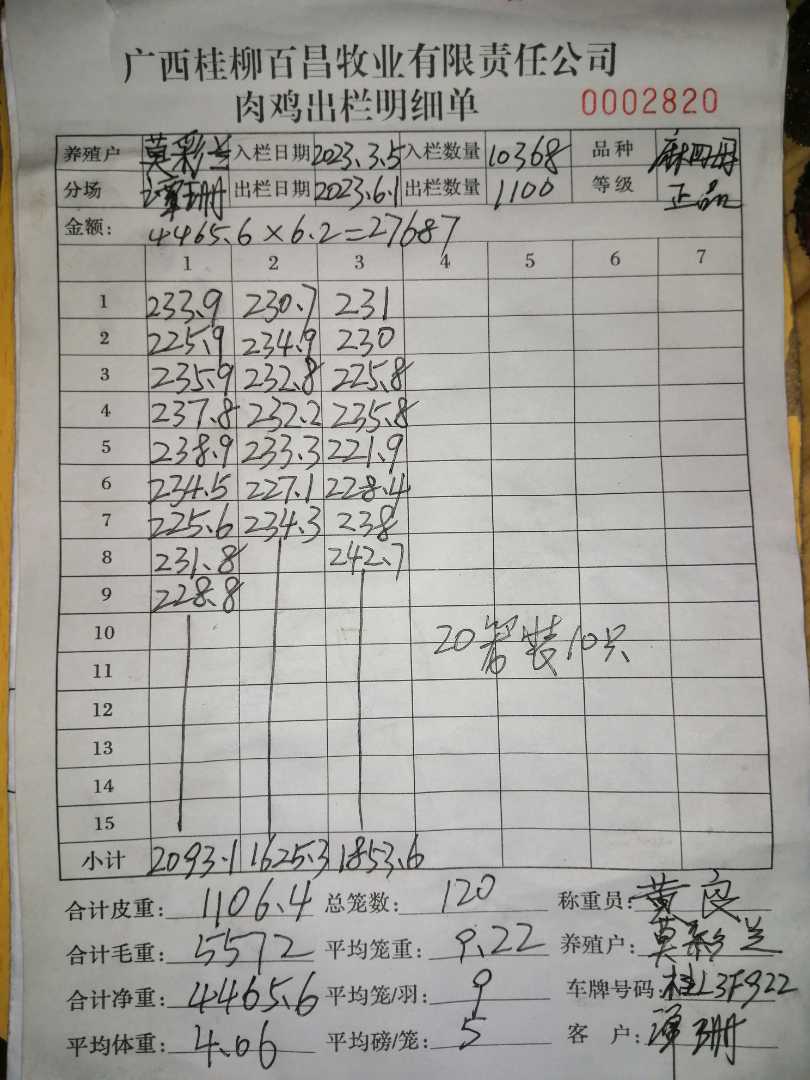 广西桂柳百昌牧业有限责任公司
肉鸡出栏明细单 0002820
养殖户 莫彩兰 入栏日期 2023.3.5 入栏数量 10368 品种
分场 谭珊 出栏日期 2023.6.1 出栏数量 1100 等级 正品
金额: 4465.6×6.2=27687
1 2 3 4 5 6 7
1 233.9 230.7 231
2 225.9 234.9 230
3 235.9 232.8 225.8
4 237.8 232.2 235.8
5 238.9 233.3 221.9
6 234.5 227.1 228.4
7 225.6 234.3 238
8 231.8 242.7
9 228.8
10 20 装10只
11
12
13
14
15
小计 2093.1 1625.3 1853.6
合计皮重: 1106.4 总笼数: 120 称重员: 黄良
合计毛重: 5572 平均笼重: 9.22 养殖户: 莫彩兰
合计净重: 4465.6 平均笼/羽: 9 车牌号码: 桂L3F922
平均体重: 4.06 平均磅/笼: 5 客户: 谭珊